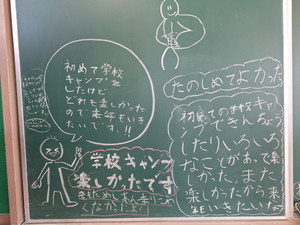 初めて学校
キャンプを
したけど
どれも楽しかった
ので来年もいき
たいです!!
学校キャンプ
楽しかったです
たのしめてよかった
初めての学校キャ
ンプできんちょう
したりいろいろ
なことがあって楽
しかった。また
楽しかったから来
年もいきたいな